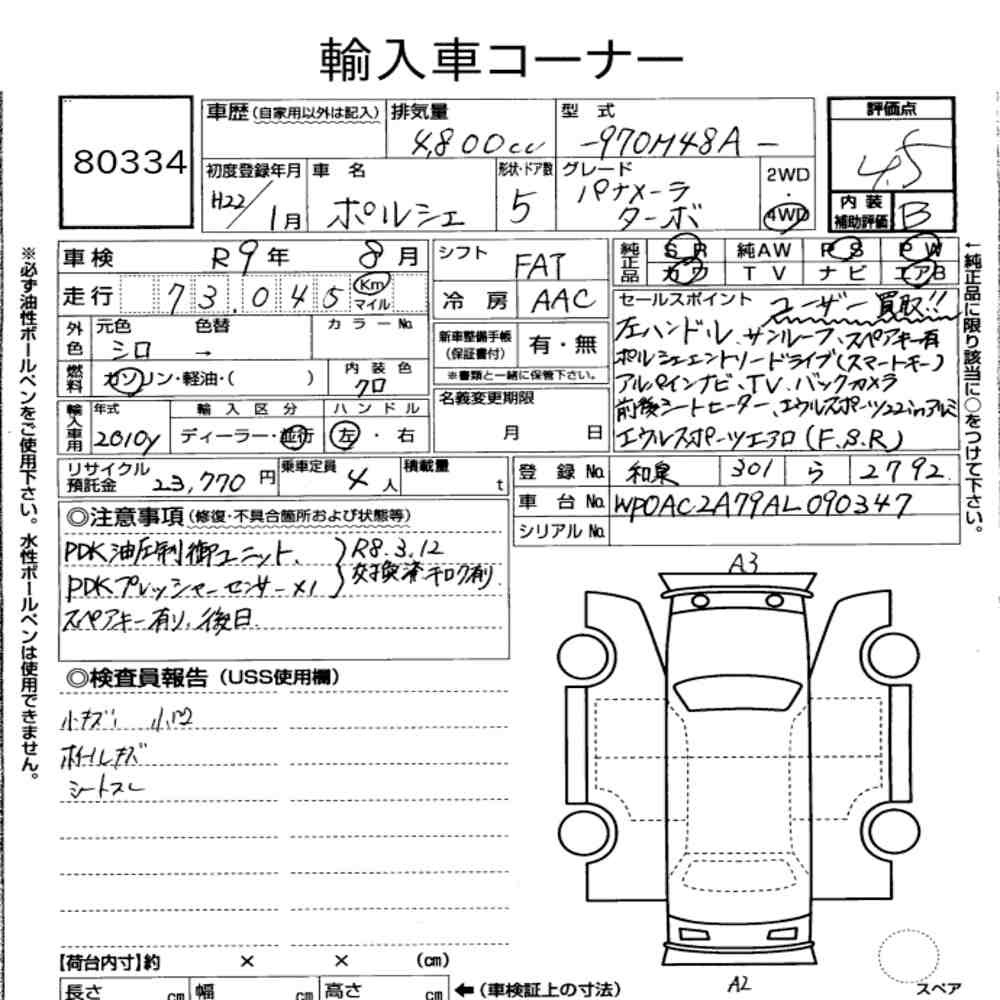 輸入車コーナー
80334
車歴(自家用以外は記入)
排気量
4,800cc
型式
-970M48A-
評価点
4.5
初度登録年月
H22/1月
車名
ポルシェ
形状・ドア数
5
グレード
パナメーラ
ターボ
2WD
・
4WD
内装
補助評価
B
※必ず油性ボールペンをご使用下さい。水性ボールペンは使用できません。
車検 R9年 8月
走行 73.045 Km
マイル
外色
元色 色替
シロ →
カラーNo.
燃料
ガソリン・軽油・( )
内装色
クロ
輸入車用
年式
2010y
輸入区分
ディーラー・並行
ハンドル
左・右
シフト
FAT
冷房
AAC
新車整備手帳
(保証書付)
有・無
※書類と一緒に保管下さい。
名義変更期限
月 日
純正品
SR 純AW PS PW
カワ TV ナビ エアB
←純正品に限り該当に○をつけて下さい。
セールスポイント ユーザー買取!!
左ハンドル、サンルーフ、スペアキー有
ポルシェエントリードライブ(スマートキー)
アルパインナビ、TV、バックカメラ
前後シートヒーター、エウルスポーツ22inアルミ
エウルスポーツエアロ(F.S.R)
リサイクル
預託金
23,770円
乗車定員
4人
積載量
t
登録No. 和泉 301 ら 2792
車台No. WP0AC2A79AL090347
シリアルNo.
◎注意事項(修復・不具合箇所および状態等)
PDK油圧制御ユニット、
PDKプレッシャーセンサー×1
R8.3.12
交換済キロク有り
スペアキー有り、後日.
◎検査員報告(USS使用欄)
小キズ 小凹
ホイールキズ
シートスレ
A3
A2
【荷台内寸】約 × × (cm)
長さ cm 幅 cm 高さ cm ←(車検証上の寸法)
スペア